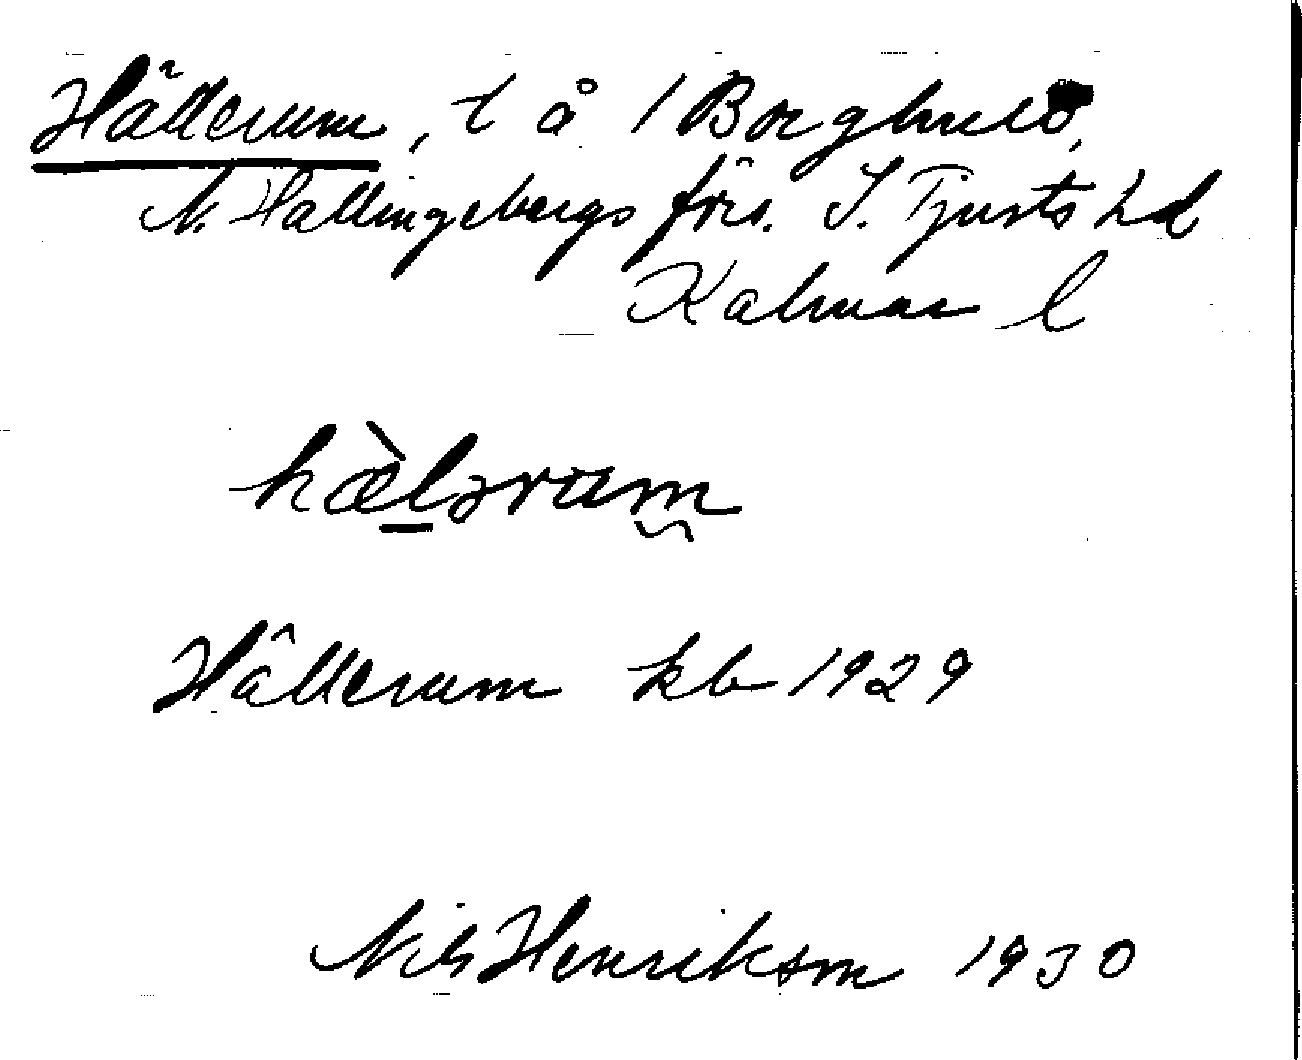 Hällerum, t å 1 Borghult,
N. Hallingebergs förs. S. Tjusts hd
Kalmar l
hæ̀lərum
Hällerum kb 1929
Nils Henrikson 1930